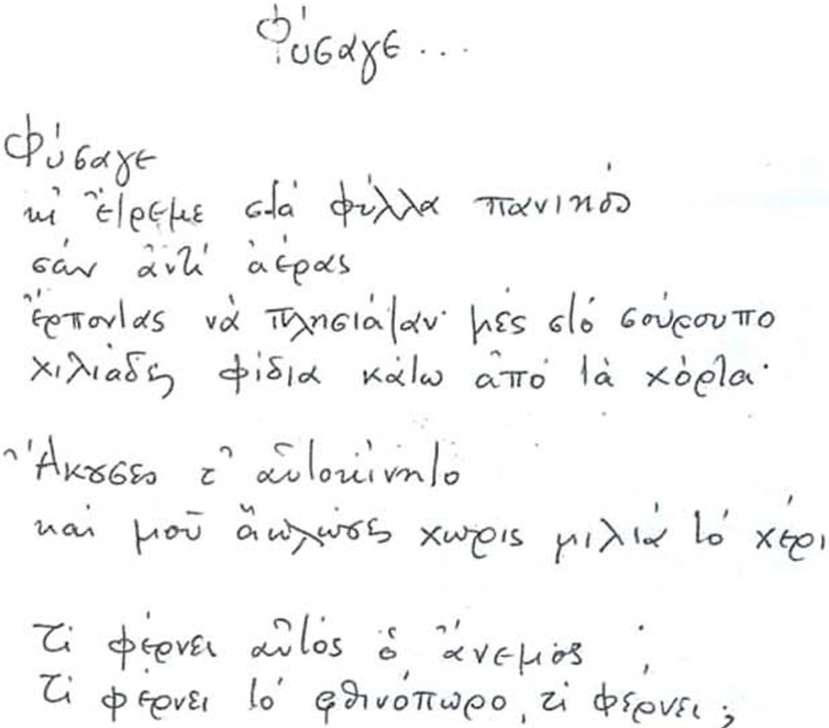 Φύσαγε...
Φύσαγε
κι ἔτρεμε στὰ φύλλα πανικὸς
σὰν ἀντὶ ἀέρας
ἕρποντας νὰ πλησιάζαν μὲς στὸ σούρουπο
χιλιάδες φίδια κάτω ἀπὸ τὰ χόρτα·
Ἄκουσες τ' αὐτοκίνητο
καὶ μοῦ ἅπλωσες χωρὶς μιλιὰ τὸ χέρι
Τί φέρνει αὐτὸς ὁ ἄνεμος;
Τί φέρνει τὸ φθινόπωρο, τί φέρνει;